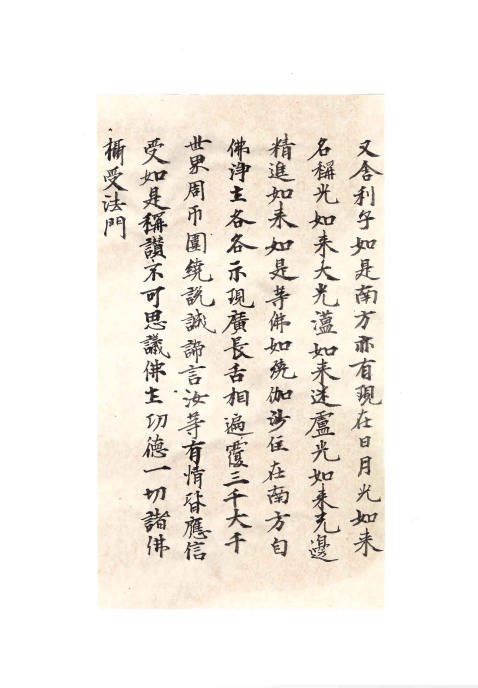 又舍利子如是南方亦有現在日月光如来
名稱光如来大光蘊如来迷盧光如来无邊
精進如来如是等佛如殑伽沙住在南方自
佛淨土各各示現廣長舌相遍覆三千大千
世界周帀圍繞説誠諦言汝等有情皆應信
受如是稱讃不可思議佛土功德一切諸佛
攝受法門